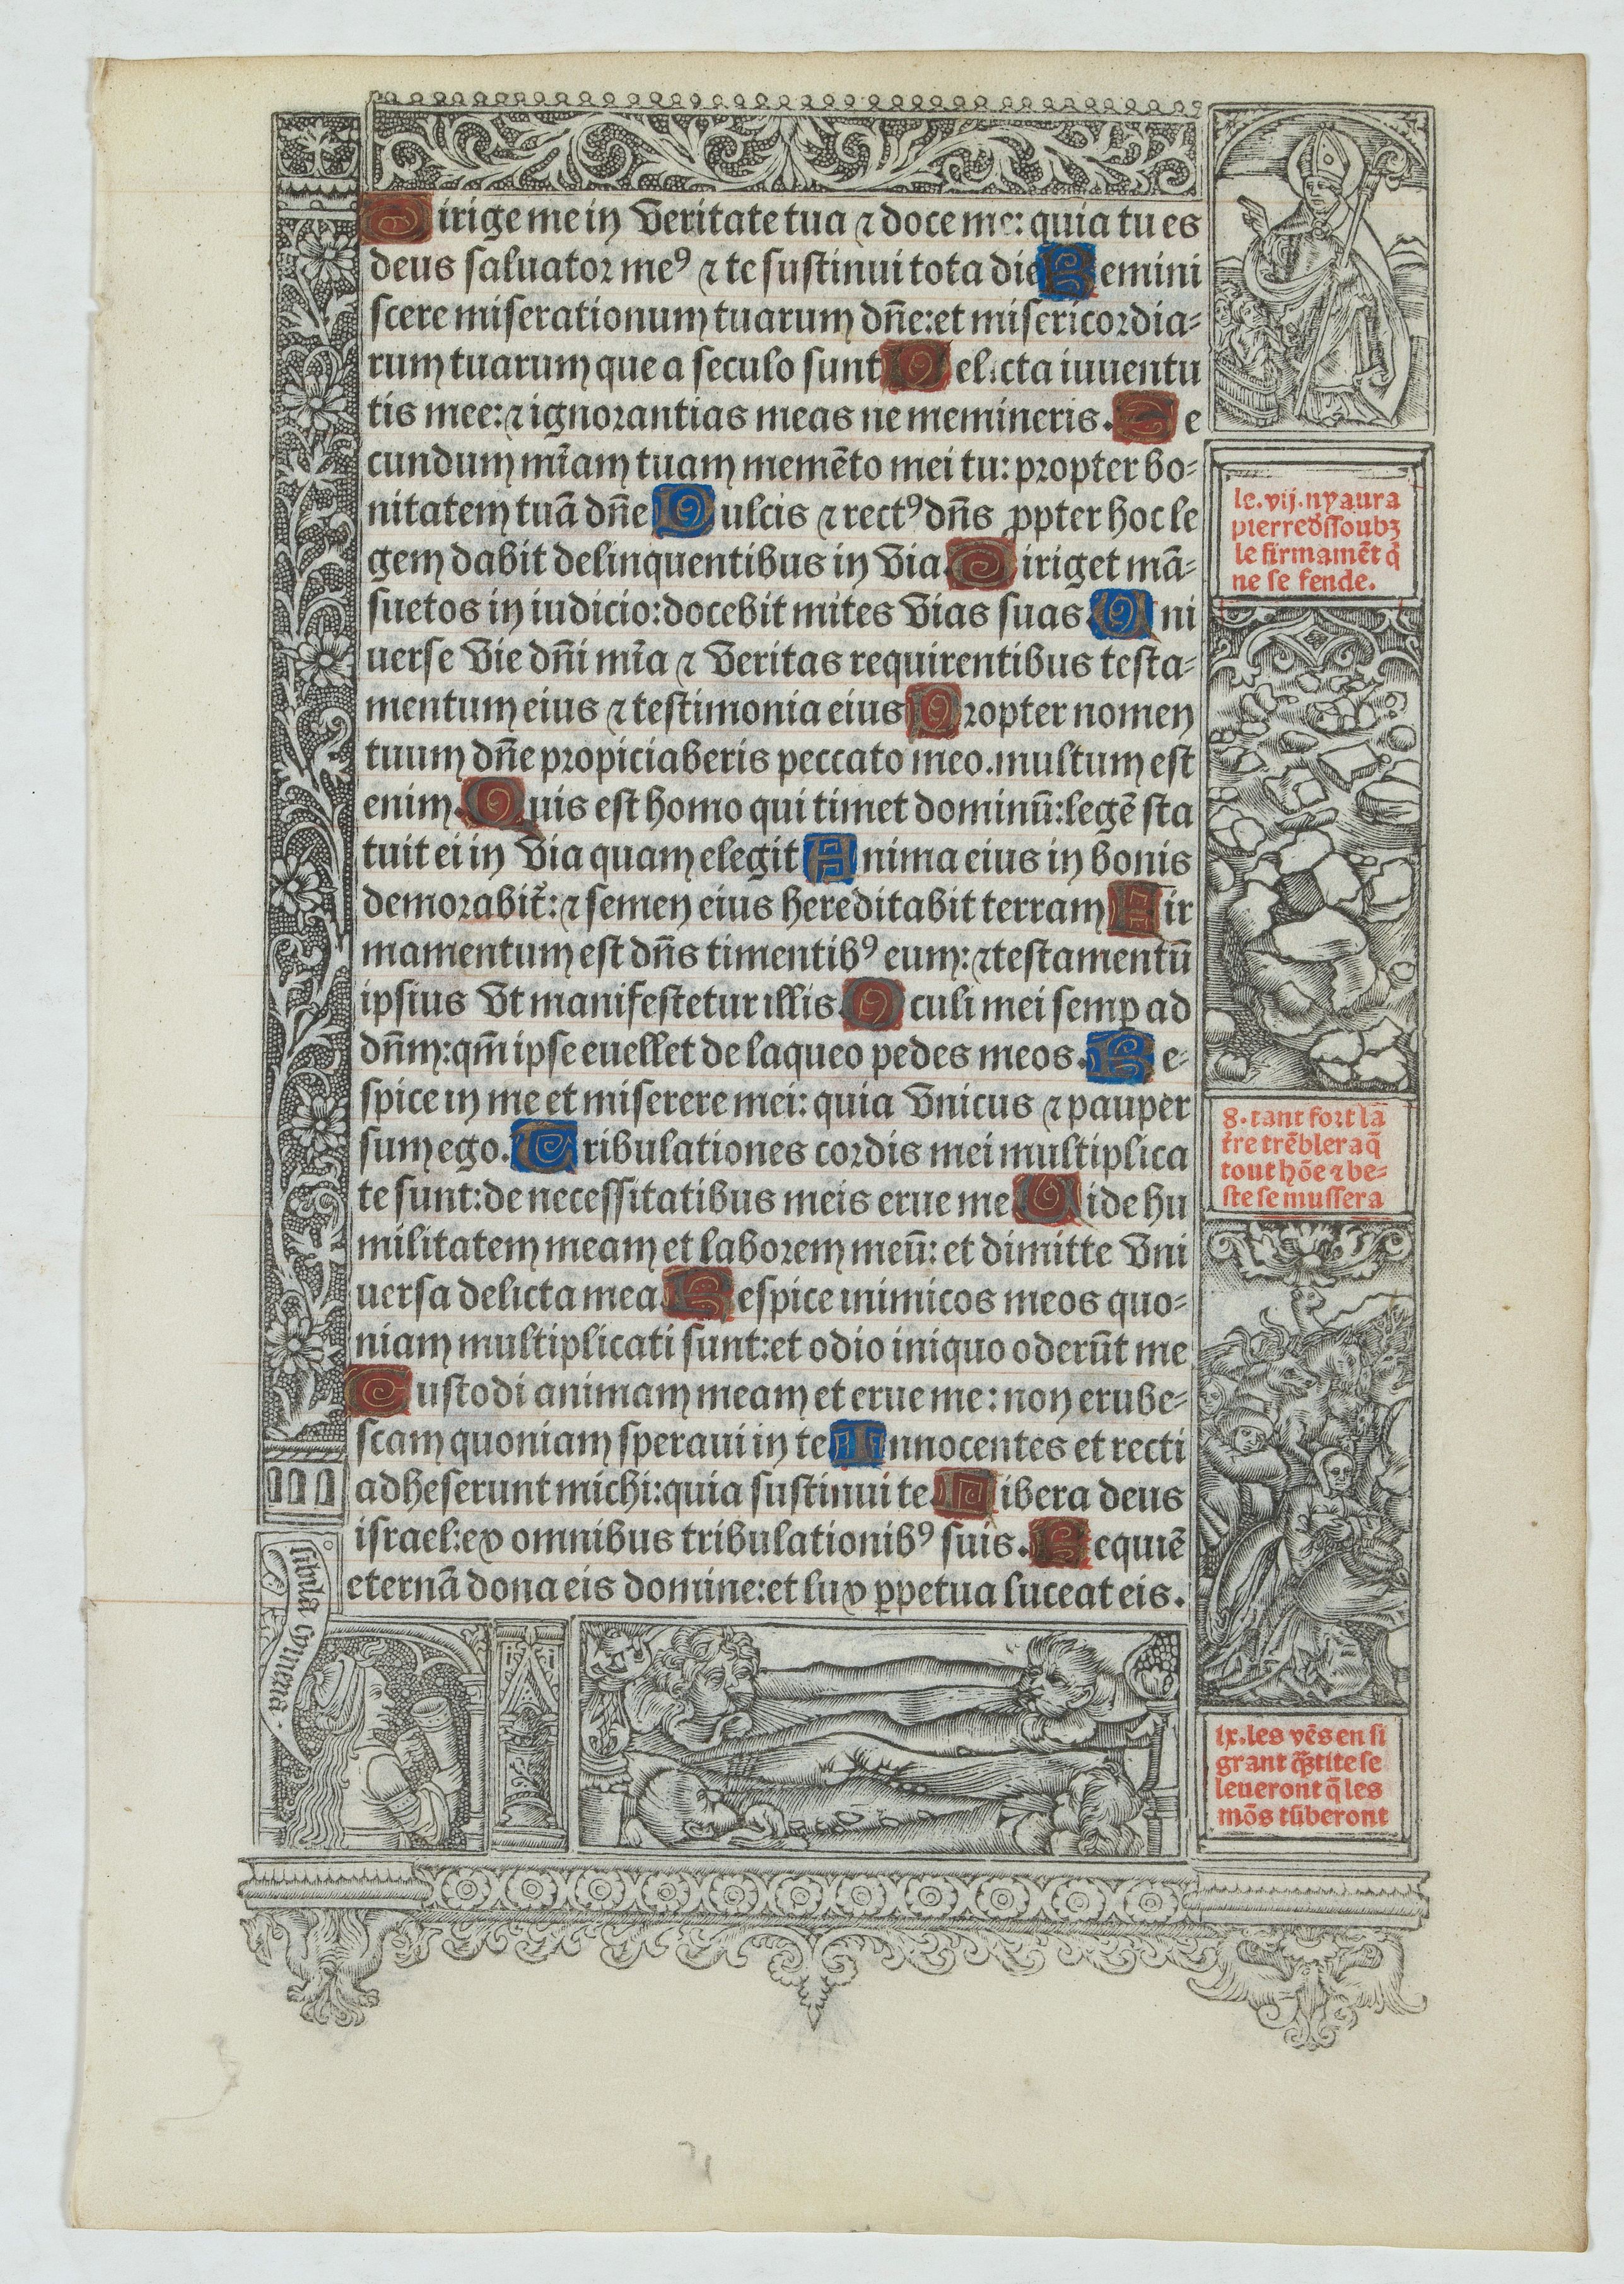 Dirige me in veritate tua ⁊ doce me: quia tu es
deus saluator meꝰ ⁊ te sustinui tota die Remini
scere miserationum tuarum dn̄e: et misericordia-
rum tuarum que a seculo sunt Delicta iuuentu
tis mee: ⁊ ignorantias meas ne memineris. Se
cundum mīam tuam memēto mei tu: propter bo-
nitatem tuā dn̄e Dulcis ⁊ rectꝰ dn̄s ꝓpter hoc le
gem dabit delinquentibus in via Diriget mā-
suetos in iudicio: docebit mites vias suas Vni
uerse vie dn̄i mīa ⁊ veritas requirentibus testa-
mentum eius ⁊ testimonia eius Propter nomen
tuum dn̄e propiciaberis peccato meo. multum est
enim. Quis est homo qui timet dominū: legē sta
tuit ei in via quam elegit Anima eius in bonis
demorabit̄: ⁊ semen eius hereditabit terram Fir
mamentum est dn̄s timentibꝰ eum: ⁊ testamentū
ipsius vt manifestetur illis Oculi mei semꝑ ad
dn̄m: qm̄ ipse euellet de laqueo pedes meos. Re-
spice in me et miserere mei: quia vnicus ⁊ pauper
sum ego. Tribulationes cordis mei multiplica
te sunt: de necessitatibus meis erue me Vide hu
militatem meam et laborem meū: et dimitte vni
uersa delicta mea. Respice inimicos meos quo-
niam multiplicati sunt: et odio iniquo oderūt me
Custodi animam meam et erue me: non erube-
scam quoniam speraui in te Innocentes et recti
adheserunt michi: quia sustinui te Libera deus
israel: ex omnibus tribulationibꝰ suis. Requiē
eternā dona eis domine: et lux ꝑpetua luceat eis.
le. vij. ny aura
pierre dſſoubz
le firmamēt q̄
ne se fende.
8. tant fort la
t̄re trēblera q̄
tout hōe ⁊ be-
ste se mussera
ix. les vēs en si
grant q̄tite se
leueront q̄ les
mōs tūberont
sibila Chimeria.